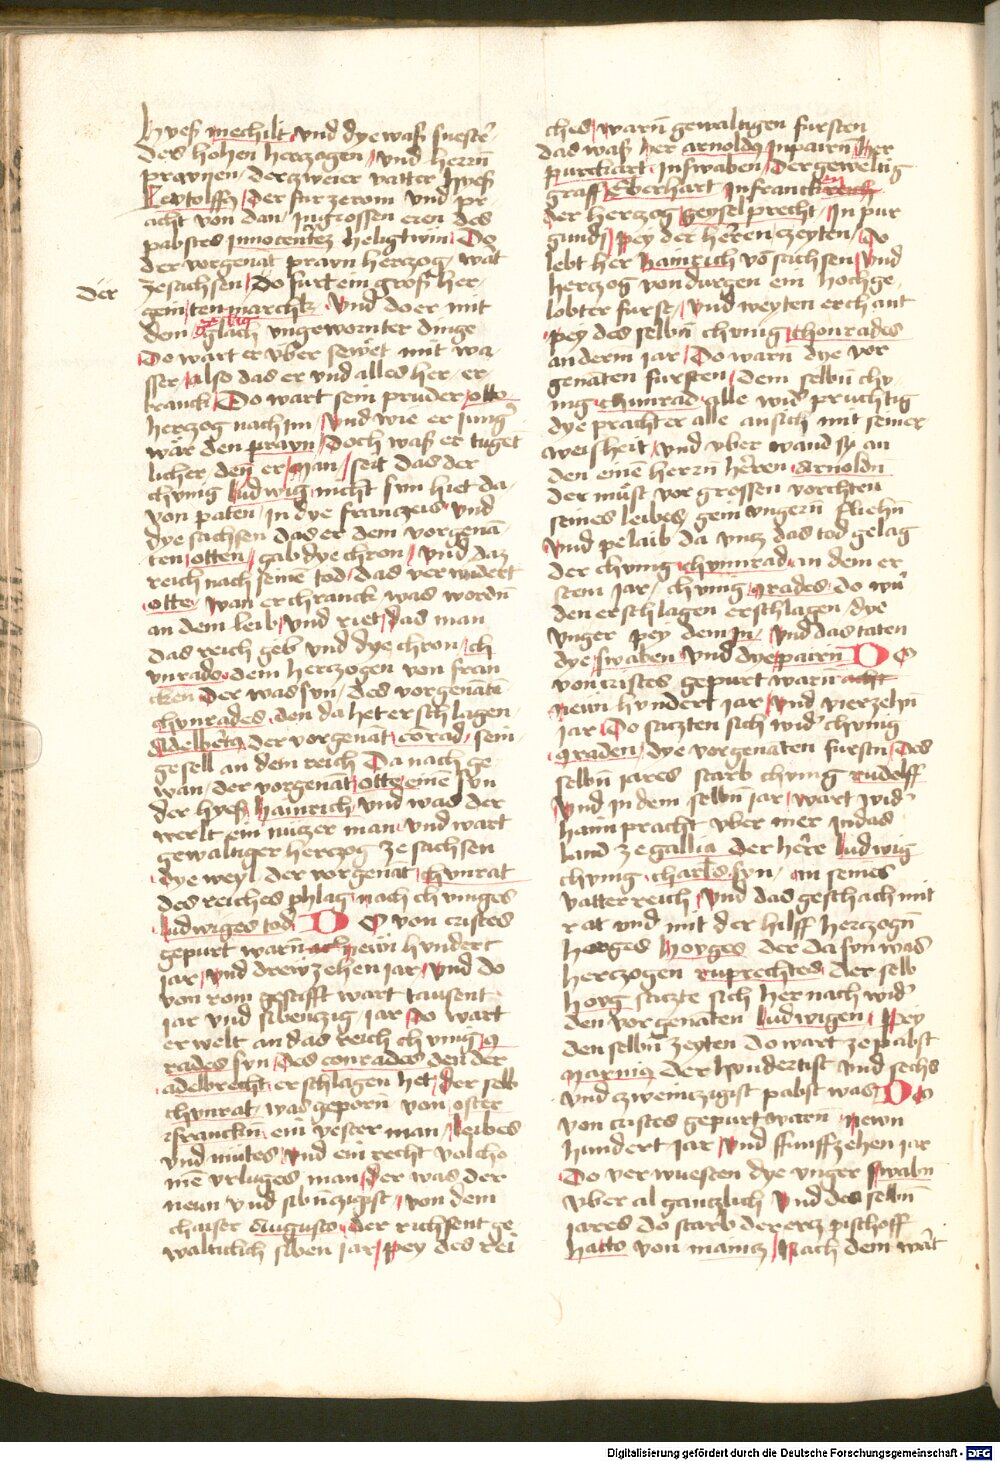 hyeß mechilt vnd dye waß swestē
des hohen hertzogen / vnd herrn̄
prawnen / der zweier vatter hyeß
Lewtolff / Der fur ze rom vnd pr
acht von dan / in grossen eren des
pabstes Innocentez heligtům Do
der vorgenāt prawn hertzog / wāt
ze sachsen / Do furt ein groß her
gein tenmarckt / Vnd do er mit
der
dem glach vngewornter dinge
Do wart er vber sewet mit wa
sser / also das er vnd alles her / er
tranck / Do wart sein pruder otto
hertzog nach im / Vnd wie er jung
wär den prawn / Doch waß er tuget
licher den er / Man / seit das der
chunig ludwig nicht sun hiet da
von paten / in dye franczeis / vnd
dye sachsen das er dem vorgenā
ten otten / gab dye chron / vnd daz
reich nach seinē tod / das verwidert
otte / wan er chranck was wordn̄
an dem leib / vnd riet / das man
das reich geb vnd dye chron / ch
vnrade dem hertzogen von fran
cken Der was sun / des vorgenātn̄
chvnrades / den da het erschlagen
Adelbertꝰ der vorgenāt / corad / sein
gesell an dem reich Da nach ge
wan / der vorgenāt / otte / einē sun
der hyeß hainrich / vnd was der
werlt ein nutzer man / vnd wart
gewaltiger hertzog ze sachsen
dye weyl / der vorgenāt / chunrat
des reiches phlag / nach chvniges
ludwiges tod / Do von cristes
gepurt warn̄ newn hundert
jar / vnd drewzehen jar / vnd do
von rom gestifft wart tausent
jar vnd sibenczig jar / Do wart
er welt an das reich chvnig 9
rades sun / des conrades den der
adelbrecht / erschlagen het / der selb
chvnrat / was geporn̄ von oster
franckn̄ / ein vester man / leibes
vnd mutes / vnd ein recht volcho
mē vrluges man / der was der
neun vnd sibn̄czigist / von dem
chaiser Augusto / der richsent ge
walticlich siben jar / Pey des rei
ches / warn̄ gewaltigen fursten
das waß her arnoldꝰ in pairn / her
purckart / in swaben / Der geweltig
graff / Eberhart in francken
der hertzog Geyselprecht / in pur
gundj / Pey der herren czeyten / Do
lebt her hainrich vō sachsen / vnd
hertzog von durgen ein hochge
lobter furst / vnd weyten erchant
Pey des selbn̄ chvnig / chonrades
anderm jar / Do warn̄ dye vor
genāten fursten / dem selbn̄ chv
nig chunrad alle widˀ pruchtig
dye pracht er alle an sich mit seiner
weisheit / vnd vber wand sy an
den eine herrn̄ herren Arnoldn̄
Der muͤst vor grossen vorchten
seines leibes / gein vngern̄ fliehn̄
Vnd pelaib da vntz das tod gelag
der chvnig chvnrad / an dem er
stem jar / chvnig 9rades / do wū
den erschlagen erschlagen / dye
vnger pey dem jn / vnd das taten
dye swaben vnd dye pairn̄ Do
von cristes gepurt warn̄ acht
newn hundert jar / vnd vierzehn̄
jar / Do saczten sich widˀ chvnig
9raden / dye vorgenāten furstn̄ / Des
selbn̄ jares starb chvnig rudolff
Vnd in dem selbn̄ jar / wart widˀ
haim pracht vber mer in das
land ze gallia der herre ludwig
chvnig charles sun / in seines
vatter reich / vnd das geschach mit
rat vnd mit der hilff hertzogn̄
horges hovges der da sun was
hertzogen ruprechtes / der selb
hovg saczte sich her nach widˀ
den vorgenāten ludwigen / Pey
den selbn̄ zeyten do wart ze pabst
Marinꝰ der hundertist vnd sechs
vnd zweinczigist pabst was Do
von cristes gepurt warn̄ newn
hundert jar / vnd funffzehen jar
Do verwuesten dye vnger swabn̄
vber al gantzlich / vnd des selbn̄
jares do starb der ercz pischoff
hatto von maincz / Nach dem wāt
Digitalisierung gefördert durch die Deutsche Forschungsgemeinschaft - DFG